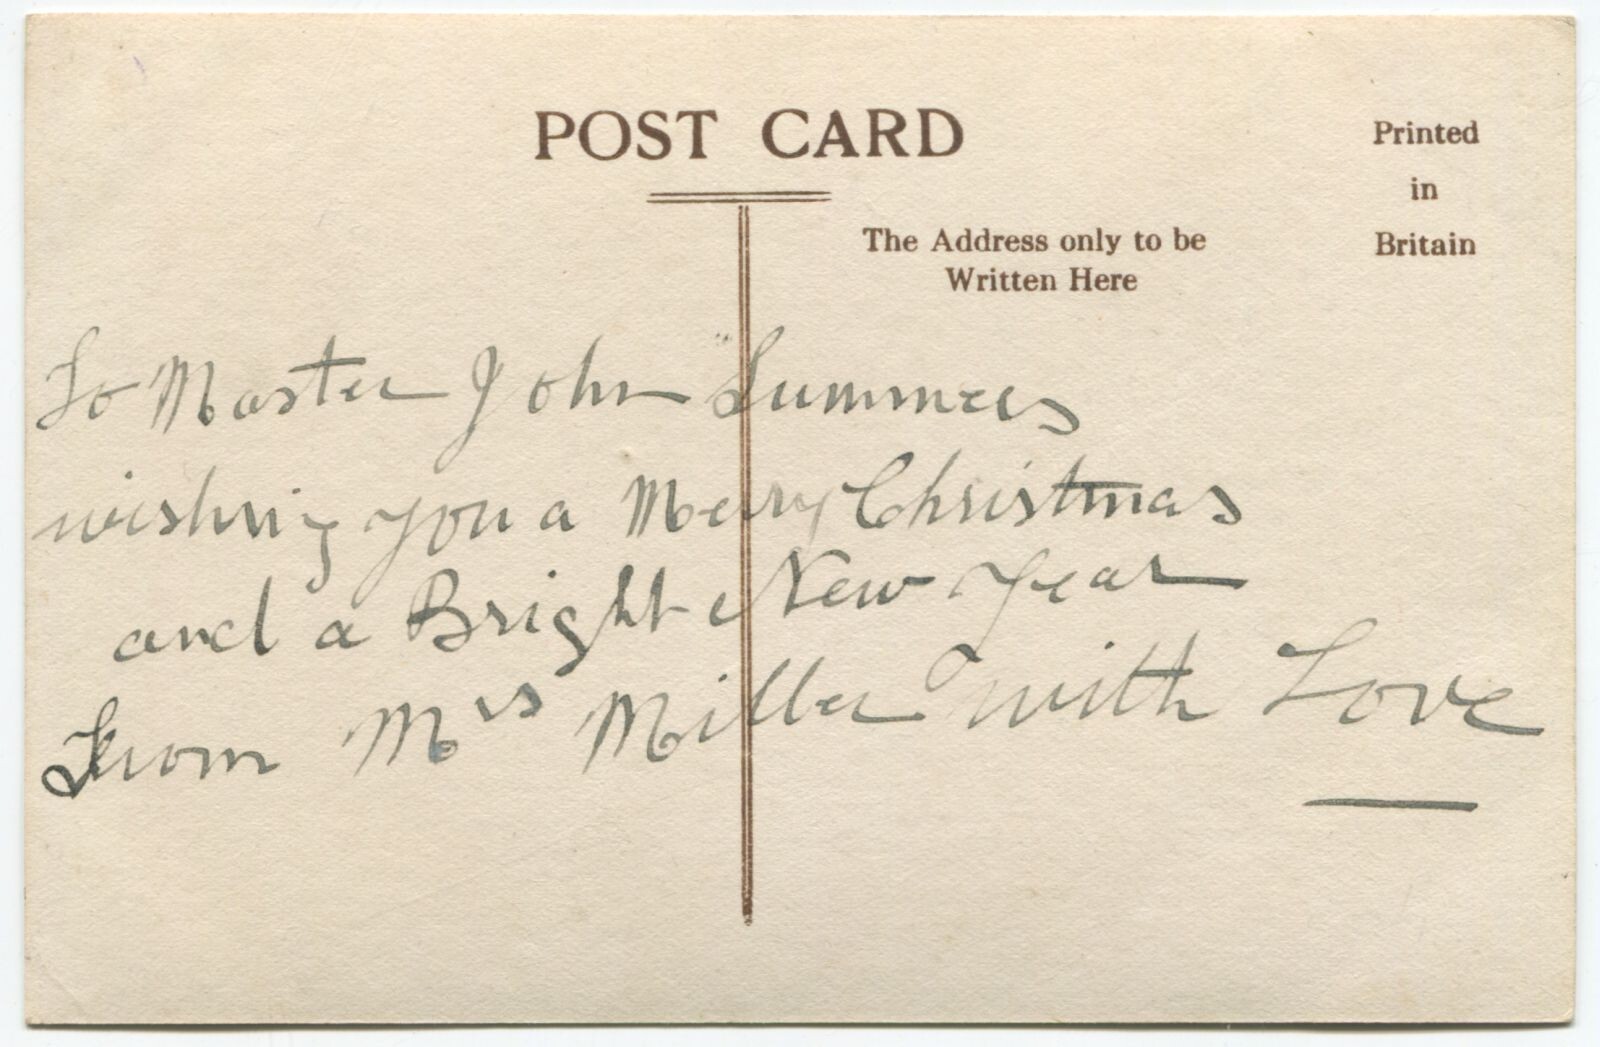 POST CARD
Printed
in
Britain
The Address only to be
Written Here
To Master John Summers
wishing you a Merry Christmas
and a Bright New Year
From Mrs Miller with Love